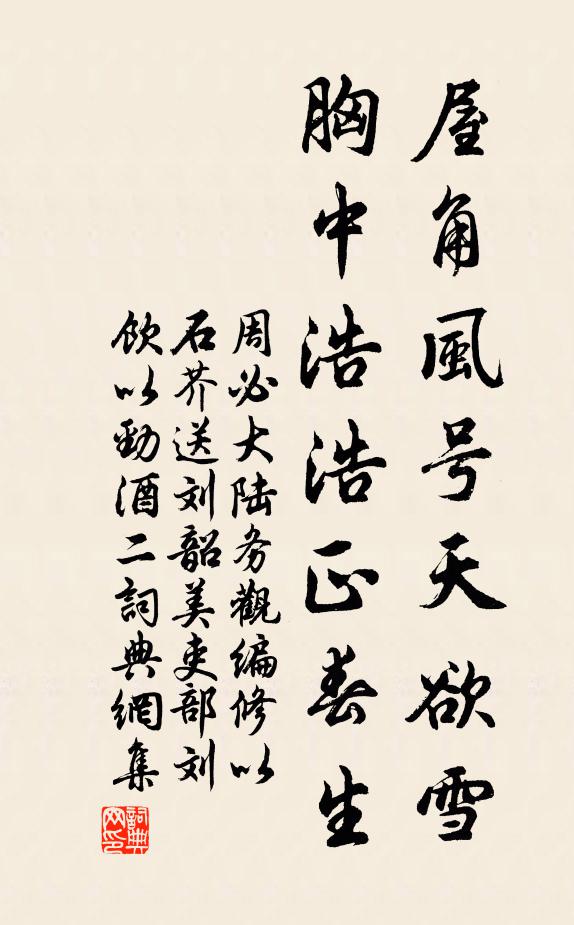 屋角風号天欲雪
胸中浩浩正春生
周必大陆务觀编修以
石芥送刘韶美吏部刘
飲以勁酒二詞典網集
詞典
网印